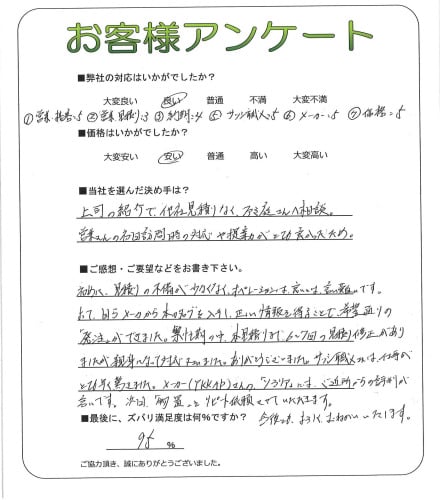 お客様アンケート
■弊社の対応はいかがでしたか?
大変良い 良い 普通 不満 大変不満
① 営業・担当=5 ② 営業見積り=3 ③ 納期=4 ⑤ サッシ職人=5 ⑥ メーカー=5 ⑦ 価格=5
■価格はいかがでしたか?
大変安い 安い 普通 高い 大変高い
■当社を選んだ決め手は?
上司の紹介で、他社見積りなく、さんへ相談。
営業さんの初回訪問時の対応や提案がとても良かったため。
■ご感想・ご要望などをお書き下さい。
初めに、見積りの不備が少なくなく、オペレーションは良いとは言い難いです。
よって、自らメーカーから本カタログを入手し、正しい情報を得ることで希望通りの
「発注」ができました。繁忙期の中、本見積りまで6~7回の見積り修正があり
ましたが親身になって対応下さいました。ありがとうございました。サッシ職人さんは、仕事が
とても早く驚きました。メーカー(YKKAP)さんの は、ご近所からの評判が
良いです。次回、 リピート依頼させていただきます。
■最後に、ズバリ満足度は何%ですか? 今後とも、よろしくおねがいいたします。
95 %
ご協力頂き、誠にありがとうございました。